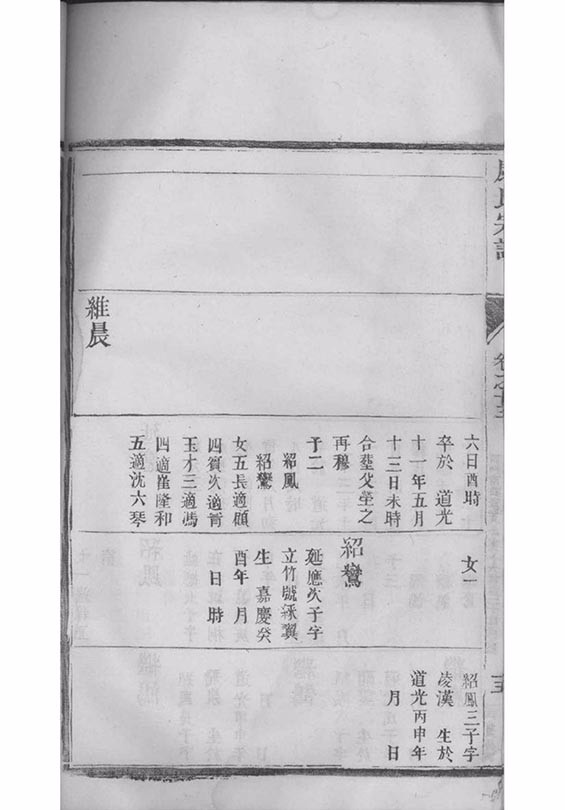 氏宗譜
卷之十三
十五
維晨
六日酉時
卒於 道光
十一年五月
十三日未時
合塟父塋之
再穆
子二
紹鳳
紹鸞
女五長適顧
四賓次適
玉才三適馮
四適崔隆和
五適沈六琴
女一
紹鸞
延應次子字
立竹號 翼
生 嘉慶癸
酉年 月
日 時
紹鳳三子字
凌漢 生於
道光丙申年
月 日